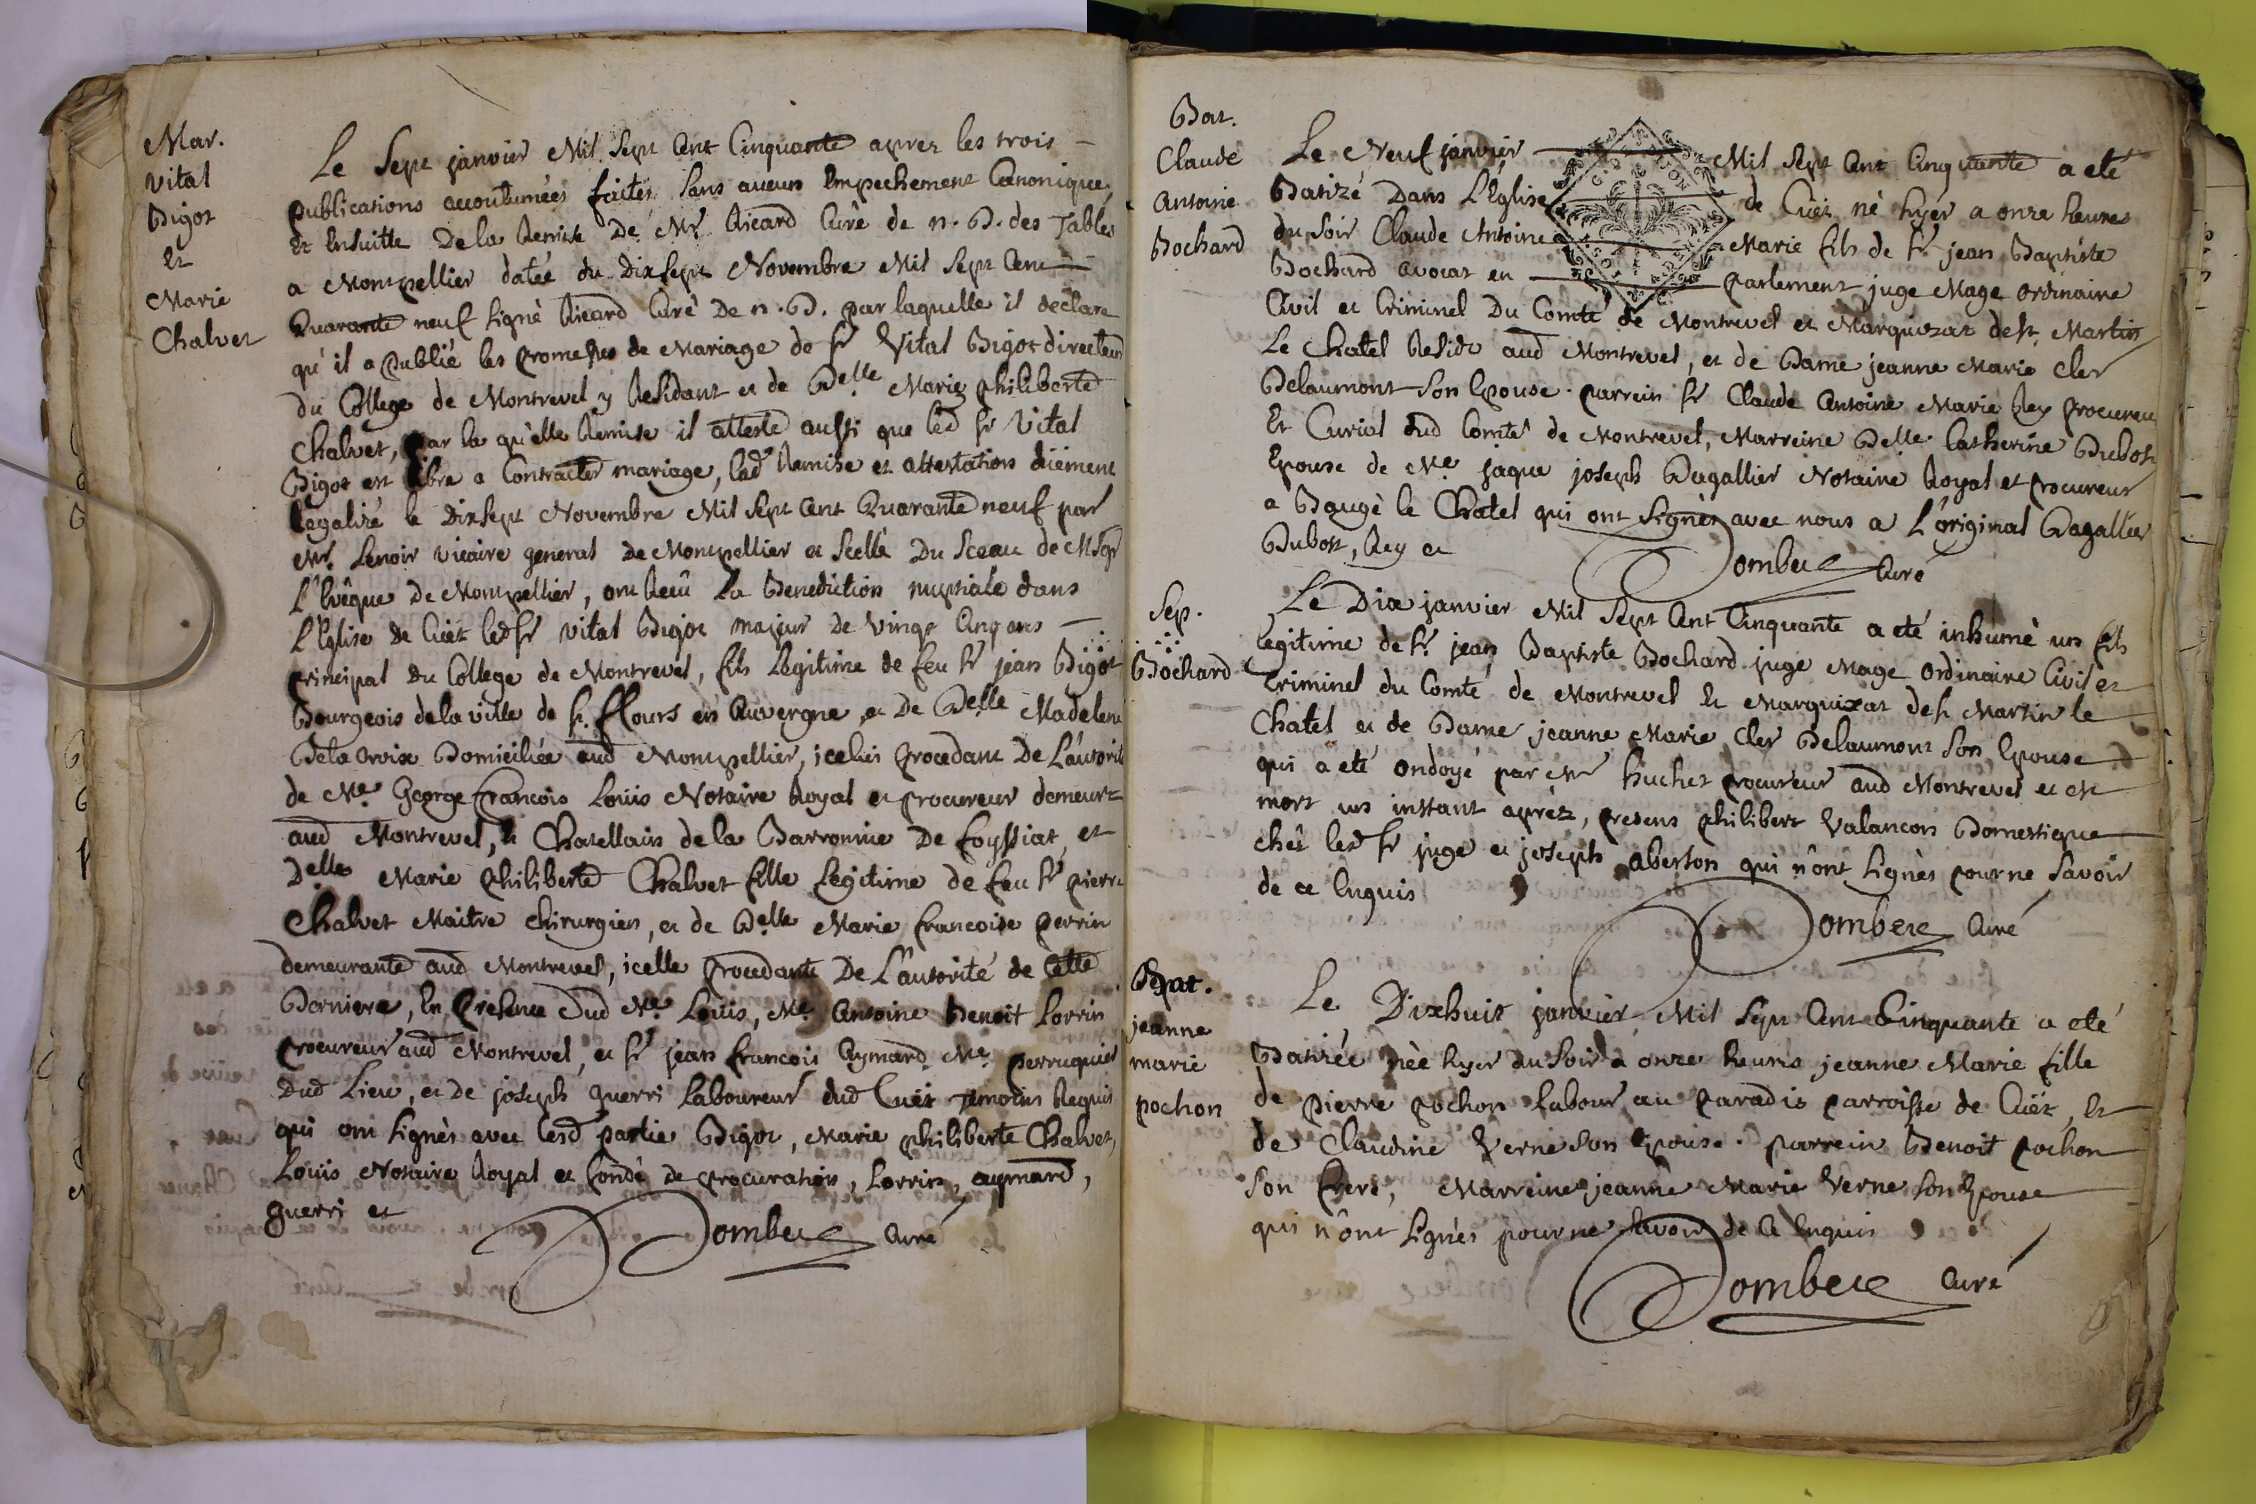 Mar.
Vital
Bigot
Et
Marie
Chalvet
Le Sept janvier Mil Sept Cent Cinquante aprez les trois
publications accoutumées faites Sans aucun Empechement Canonique
Et Ensuitte De la Remise De Mr Ricard Curé de n. D. des Tables
a Montpellier datée du Dixsept Novembre Mil Sept Cent
Quarante neuf Signé Ricard Curé De n. D. par laquelle il déclare
qu'il a publié les promesses de Mariage de Sr Vital Bigot directeur
du College de Montrevel y Residant et de Delle Marie philiberte
Chalvet, par la qu'elle Remise il atteste aussi que led Sr Vital
Bigot est libre a Contracter mariage, lad Remise et attestation düement
legalizé le Dixsept Novembre Mil Sept Cent Quarante neuf par
Mr. Lenoir vicaire general de Montpellier et Scellé Du Sceau de Msgr
L'Evêque De Montpellier, ont Reçû La Benediction nuptiale dans
L'Eglise de Cüet led Sr Vital Bigot majeur De Vingt Cinq ans
principal du College de Montrevel, fils Legitime de feu Sr jean Bigot
Bourgeois de la ville de St. fflours en Auvergne, et De Delle Madelene
Dela croix Domiciliée aud Montpellier, icelui procedant De L'autorité
de Me George François Loüis Notaire Royal et procureur demeurt
aud Montrevel, & Chatellain de la Barronnie De foyssiat, et
Delle Marie philiberte Chalvet fille Legitime de feu Sr pierre
Chalvet Maitre Chirurgien, et de Delle Marie francoise perrin
demeurante aud Montrevel, icelle procedante De L'autorité de Cette
Derniere, En presence Dud Me. Loüis, Me. Antoine Benoit Lorrin
procureur aud Montrevel, et Sr jean francois Aymard Me. perruquier
Dud Lieu, et de joseph guerri Laboureur dud Cuët Temoins Requis
qui ont Signés avec lesd partie Bigot, Marie philiberte Chalvet,
Loüis Notaire Royal et fondé de procuration, Lorrin, aymard,
guerri et
Dombey Curé
Bat.
Claude
Antoine
Bochard
Le Neuf janvier Mil Sept Cent Cinquante a eté
Batizé Dans L'Eglise de Cüet né hyer a onze heures
du Soir Claude Antoine Marie fils de Sr jean Baptiste
Bochard avocat en parlement juge Mage ordinaire
Civil et Criminel Du Comté de Montrevel et Marquizat de St. Martin
Le Chatel Reside aud Montrevel, et de Dame jeanne Marie Cler
Delaumont Son Epouse. parrein Sr Claude Antoine Marie Rey procureur
Et Curial dud Comté de Montrevel, Marreine Delle Catherine Dubost
Epouse de Me. jaque joseph Dagallier Notaire Royal et procureur
a Baugé le Chatel qui ont Signés avec nous a L'original Dagallier
Dubost, Rey et
Dombey Curé
Sep.
Bochard
Le Dix janvier Mil Sept Cent Cinquante a eté inhumé un fils
Legitime de Sr. jean Baptiste Bochard juge Mage ordinaire Civil et
Criminel du Comté de Montrevel Et Marquizat de St Martin le
Chatel et de Dame jeanne Marie Cler Delaumont Son Epouse
qui a eté ondoyé par Me huchet procureur aud Montrevel et est
mort un instant aprez, presens philibert Valancon Domestique
chés led Sr juge et joseph aberton qui n'ont Signés pour ne Savoir
de ce Enquis
Dombey Curé
Bat.
jeanne
marie
pochon
Le Dixhuit janvier Mil Sept Cent Cinquante a eté
Batizée née hyer du Soir a onze heures jeanne Marie fille
de pierre pochon Labour au paradis parroisse de Cuët, Et
de Claudine Verne Son Epouse. parrein Benoit pochon
Son frere, Marreine jeanne Marie Verne Son Epouse
qui n'ont Signés pour ne Savoir de Ce Enquis
Dombey Curé